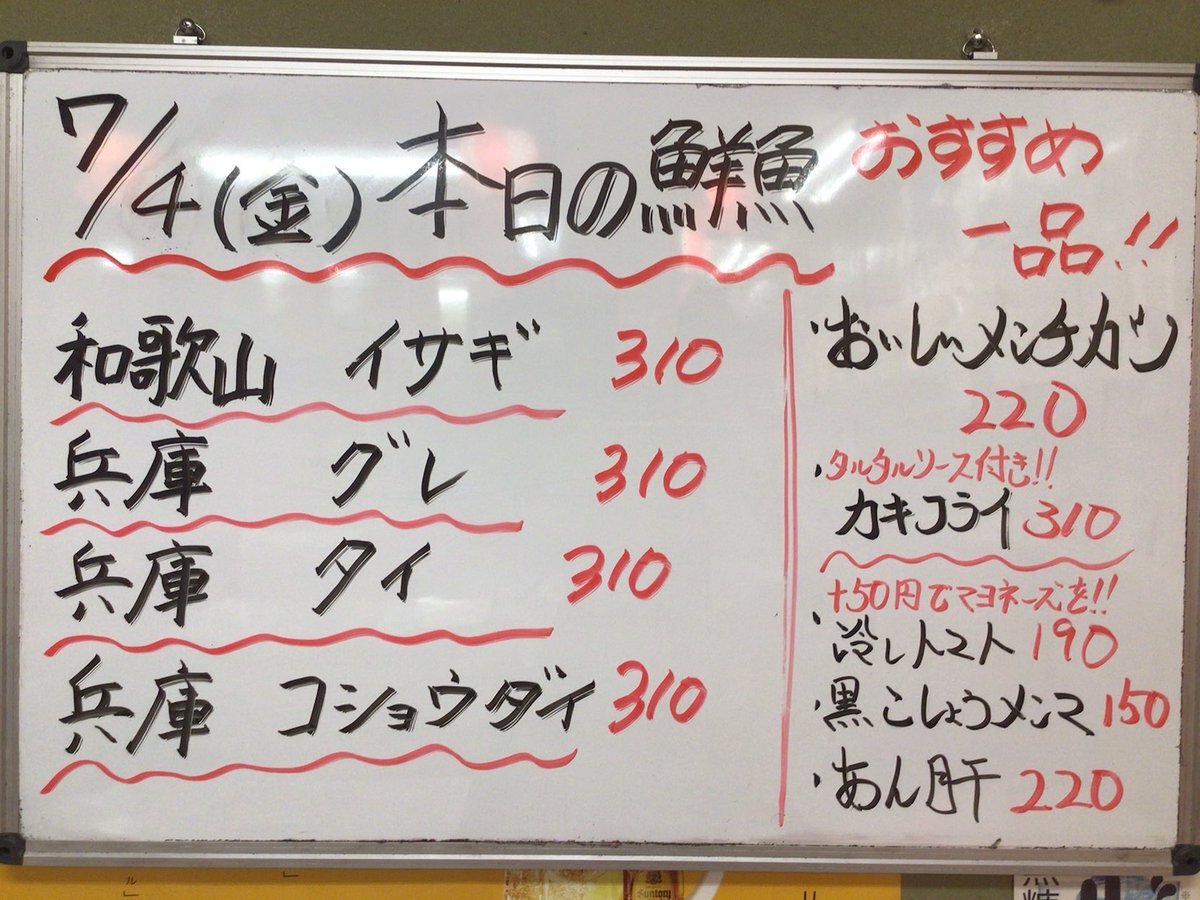 7/4(金)本日の鮮魚
和歌山 イサギ 310
兵庫 グレ 310
兵庫 タイ 310
兵庫 コショウダイ 310
おすすめ
一品!!
・おいしいメンチカツ
220
・タルタルソース付き!!
カキフライ 310
+50円でマヨネーズを!!
・冷しトマト 190
・黒こしょうメンマ 150
・あん肝 220
Suntory